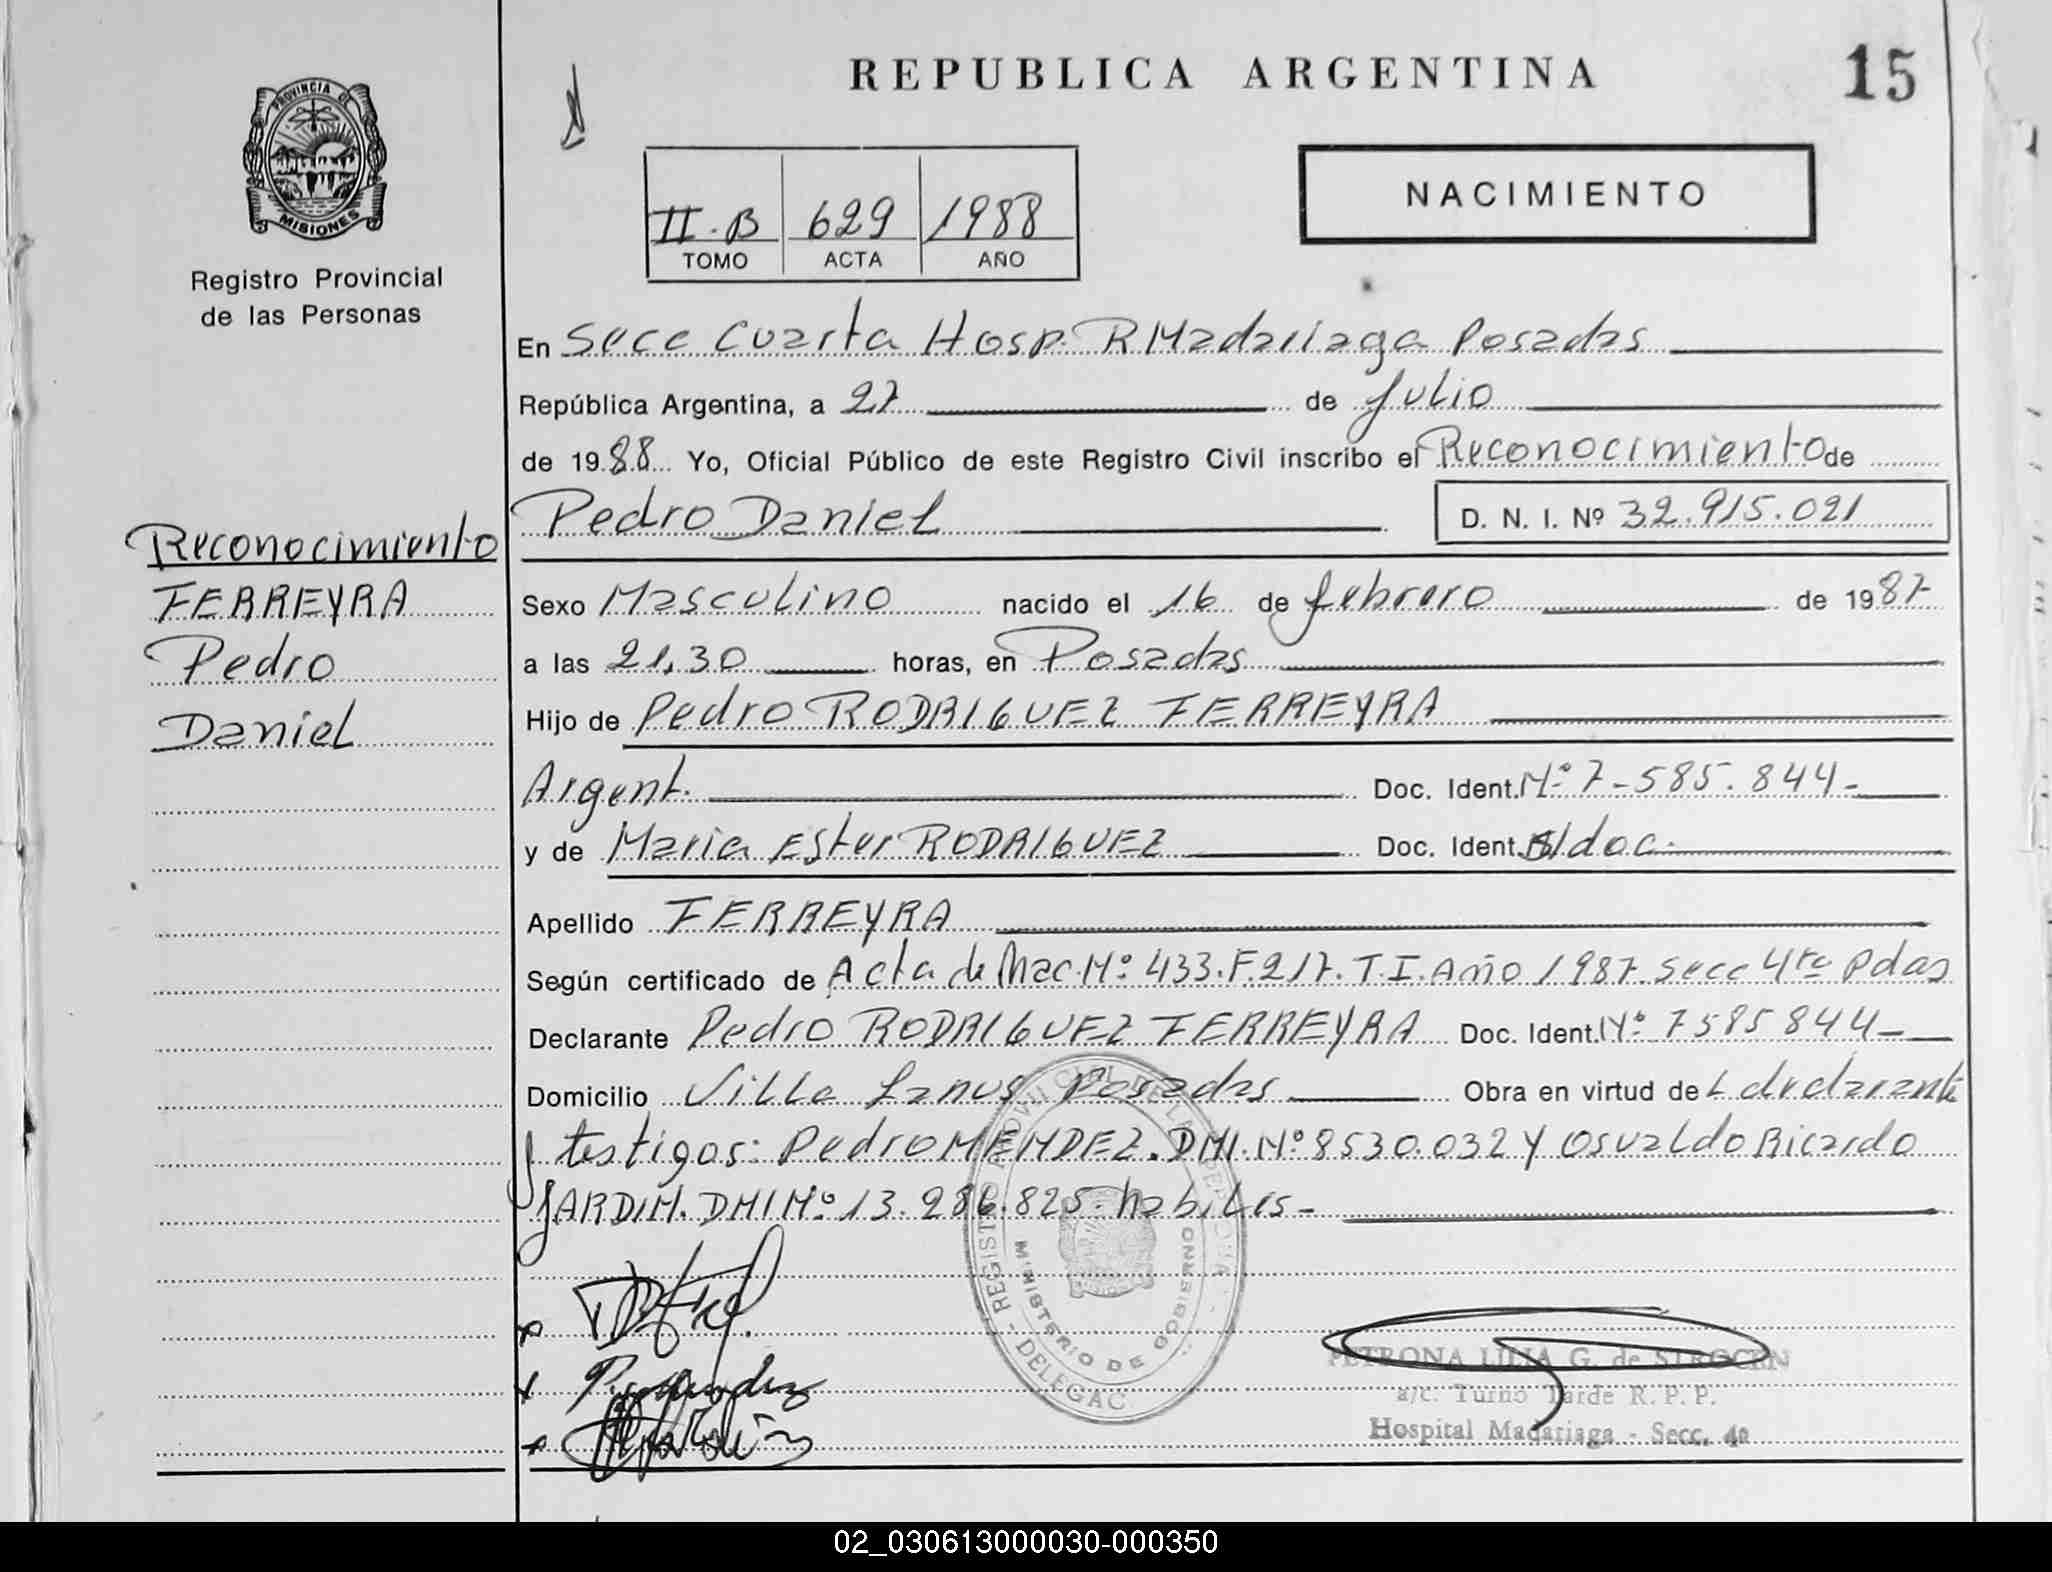 REPUBLICA ARGENTINA
15
PROVINCIA DE
MISIONES
Registro Provincial
de las Personas
II.B 629 1988
TOMO ACTA AÑO
NACIMIENTO
En Secc Cuarta Hosp. R Madariaga Posadas
República Argentina, a 27 de Julio
de 1988 Yo, Oficial Público de este Registro Civil inscribo el Reconocimiento de
Pedro Daniel D. N. I. Nº 32.915.021
Reconocimiento
FERREYRA
Pedro
Daniel
Sexo Masculino nacido el 16 de febrero de 1987
a las 21,30 horas, en Posadas
Hijo de Pedro RODRIGUEZ FERREYRA
Argent. Doc. Ident. Nº 7-585.844-
y de Maria Ester RODRIGUEZ Doc. Ident. S/doc.
Apellido FERREYRA
Según certificado de Acta de Nac. Nº 433.F.217.T.I.Año 1987.Secc 4ta Pdas
Declarante Pedro RODRIGUEZ FERREYRA Doc. Ident. Nº 7585844-
Domicilio Villa Lanus Posadas Obra en virtud de L declarante
y testigos: Pedro MENDEZ. DNI. Nº 8530.032 y Osvaldo Ricardo
JARDIN. DNI Nº 13.286.825. habiles-
REGISTRO PROVINCIAL DE LAS PERSONAS - DELEGAC
MINISTERIO DE GOBIERNO
PETRONA LILIA G. de STROCEN
a/c. Turno Tarde R. P. P.
Hospital Madariaga - Secc. 4a
02_030613000030-000350